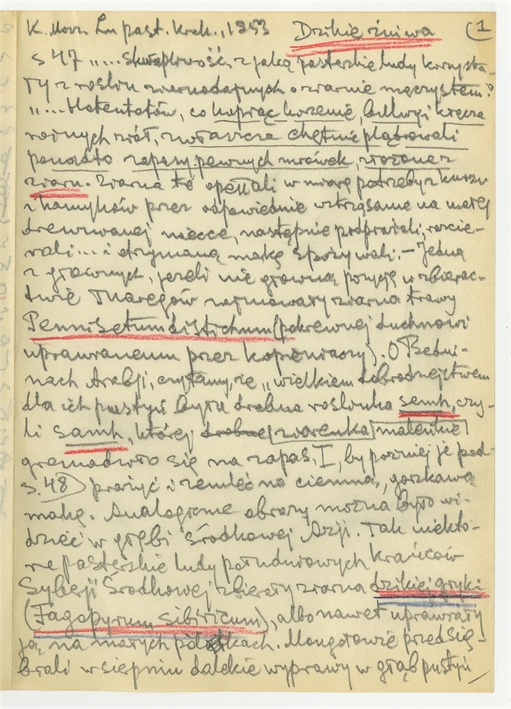 K. Mosz. Lu past. Krak., 1953 Dzikie żniwa 1
s 47 „.... skwapliwość, z jaką pasterskie ludy korzysta-
ły z roślin ziarnodajnych o ziarnie mączystem?
„.... Hotentotów, co kopiąc korzenie, bulwy i kłącza
rozmaitych ziół, zwłaszcza chętnie plądrowali
ponadto zapasy pewnych mrówek, złożone z
ziarn. Ziarna te opełłali w miarę potrzeby z kurzu
i kamyków przez odpowiednie wstrząsanie na małej
drewnianej niecce, następnie podprażali, rozcie-
rali... i otrzymaną mąkę spożywali. – Jedną
z głównych, jeżeli nie główną pozycję w zbierac-
twie Tuaregów zajmowały ziarna trawy
Pennisetum distichum (pokrewnej duchnowi
uprawianemu przez kopieniaczy). O Bedui-
nach Arabji, czytamy, że „wielkiem dobrodziejstwem
dla ich pustyń była drobna roślinka semh, czy-
li samh, której drobne ziarenka maleńkie
gromadziło się na zapas, I, by później je pod-
s. 48) prażyć i zemleć na ciemną, gorzkawą
mąkę. Analogiczne obrazy można było wi-
dzieć w głębi Środkowej Azji. Tak niektó-
re pasterskie ludy południowych krańców
Syberji Środkowej zbierały ziarna dzikiej gryki
(Fagopyrum sibiricum), albo nawet uprawiały
ją na małych poletkach. Mongołowie przedsię-
brali w sierpniu dalekie wyprawy w głąb pustyń